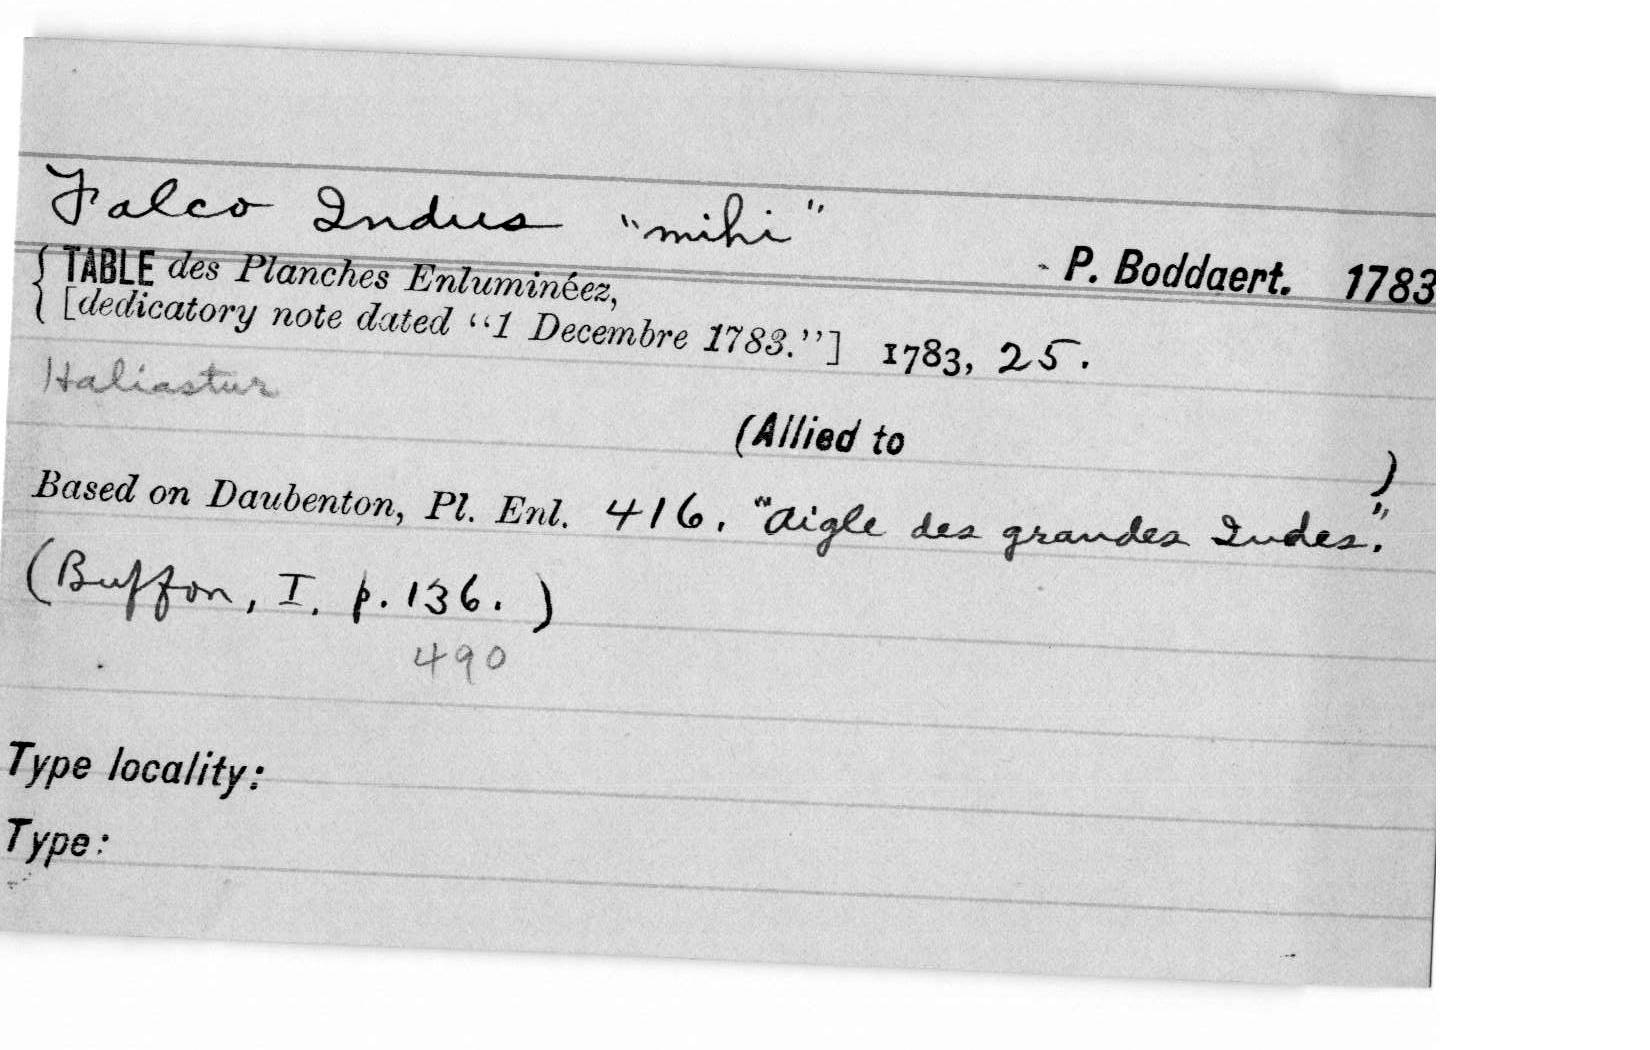 Falco Indus "mihi"
P. Boddaert. 1783
{ TABLE des Planches Enluminéez,
[dedicatory note dated "1 Decembre 1783."] 1783, 25.
Haliastur
(Allied to )
Based on Daubenton, Pl. Enl. 416. "Aigle des grandes Indes."
(Buffon, I. p. 136.)
490
Type locality:
Type: